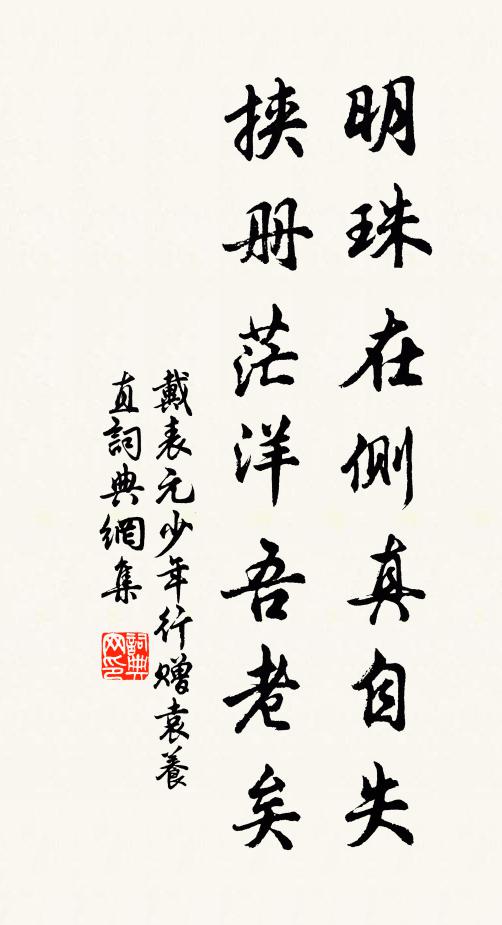 明珠在側真自失
挾册茫洋吾老矣
戴表元少年行贈袁養
直詞典網集
詞典網印